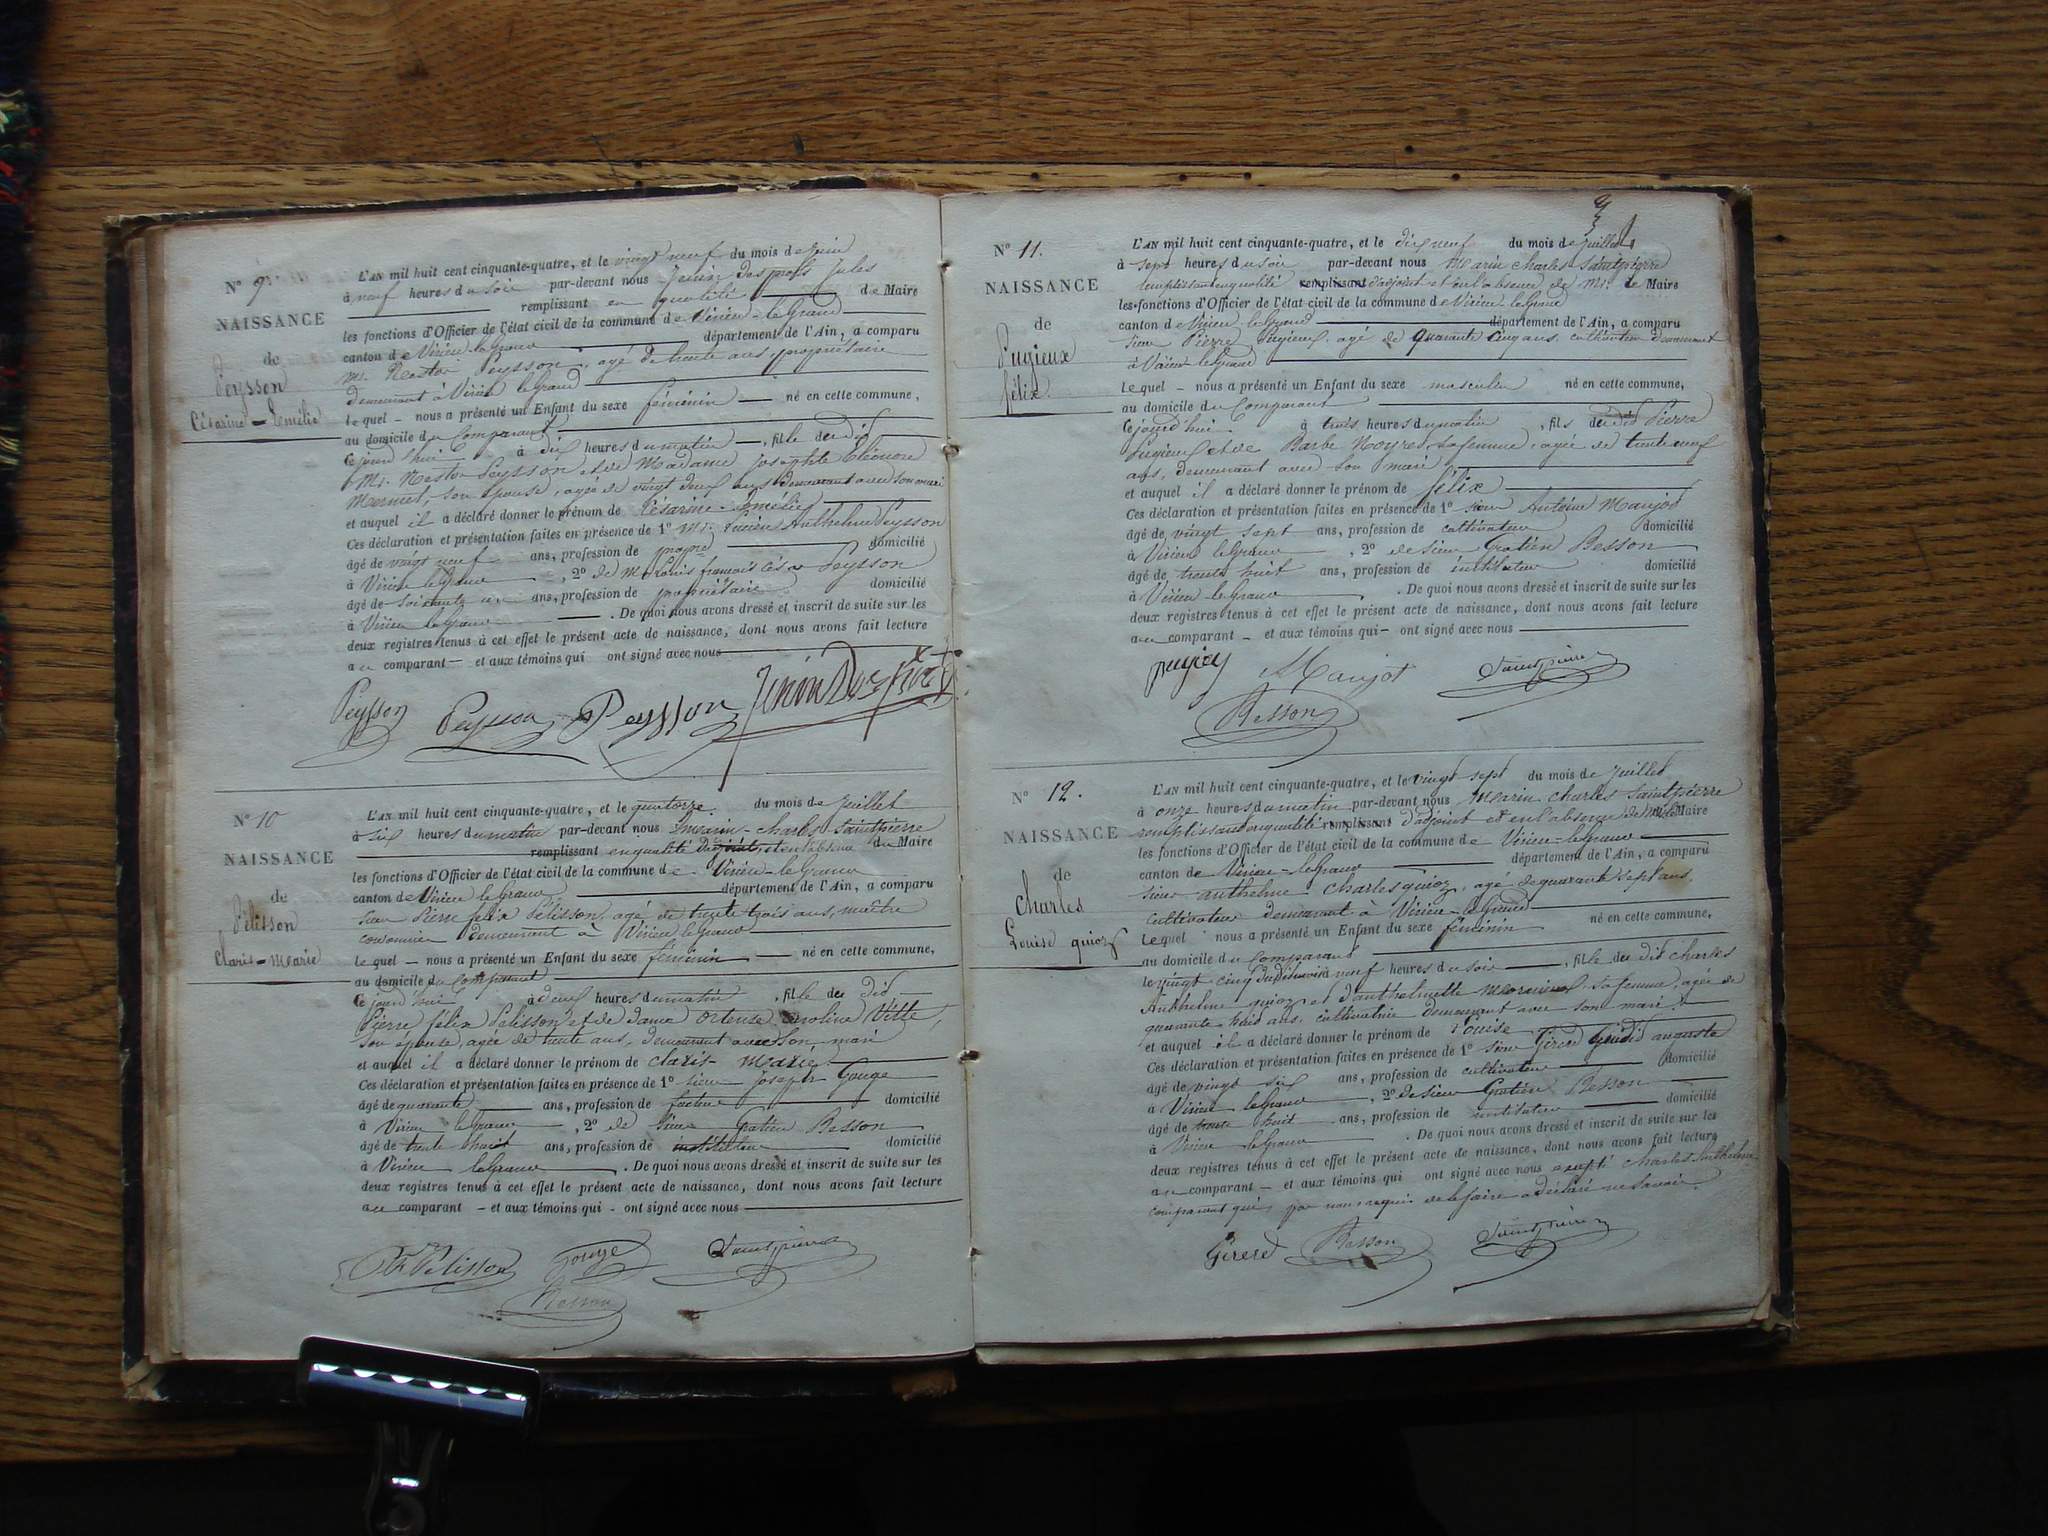 N° 9
NAISSANCE
de
Peysson
Césarine-Emélie
L'AN mil huit cent cinquante-quatre, et le vingt neuf du mois de juin
à neuf heures du soir par-devant nous Jenin Desprots Jules
remplissant en qualité de Maire
les fonctions d'Officier de l'état civil de la commune de Virieu-le-Grand
canton de Virieu le Grand département de l'Ain, a comparu
Mr. Nestor Peysson, agé de trente ans propriétaire
demeurant à Virieu le Grand
lequel nous a présenté un Enfant du sexe féminin né en cette commune,
au domicile du Comparant
Ce jourd'hui à dix heures du matin, fille du dit
Mr. Nestor Peysson et de Madame Josephte Eléonore
Mermet, son épouse, agée de vingt deux ans demeurant avec son mari
et auquel il a déclaré donner le prénom de Césarine-Emélie
Ces déclaration et présentation faites en présence de 1° Mr. Lucien Anthelme Peysson
âgé de vingt neuf ans, profession de domicilié
à Virieu le Grand, 2° de Mr Louis françois César Peysson
âgé de soixante un ans, profession de propriétaire domicilié
à Virieu le Grand. De quoi nous avons dressé et inscrit de suite sur les
deux registres tenus à cet effet le présent acte de naissance, dont nous avons fait lecture
au comparant et aux témoins qui ont signé avec nous
Peysson Peysson Peysson Jenin Desprots
N° 10
NAISSANCE
de
Pélisson
Claris-Marie
L'AN mil huit cent cinquante-quatre, et le quatorze du mois de juillet
à six heures du matin par-devant nous Marin-Charles Saintpierre
remplissant en qualité d'adjoint et en l'absence du Maire
les fonctions d'Officier de l'état civil de la commune de Virieu-le-Grand
canton de Virieu le Grand département de l'Ain, a comparu
sieur Pierre félix Pélisson, agé de trente trois ans, maître
cordonnier demeurant à Virieu le Grand
lequel nous a présenté un Enfant du sexe féminin né en cette commune,
au domicile du Comparant
Ce jourd'hui à deux heures du matin, fille du dit
Pierre félix Pélisson et de dame Ortense Caroline Vette
son épouse, agée de trente ans, demeurant avec son mari
et auquel il a déclaré donner le prénom de Claris-Marie
Ces déclaration et présentation faites en présence de 1° sieur Joseph Gouge
âgé de quarante ans, profession de facteur domicilié
à Virieu le Grand, 2° de sieur Gratien Besson
âgé de trente huit ans, profession de instituteur domicilié
à Virieu le Grand. De quoi nous avons dressé et inscrit de suite sur les
deux registres tenus à cet effet le présent acte de naissance, dont nous avons fait lecture
au comparant et aux témoins qui ont signé avec nous
Pélisson Gouge Saintpierre
Besson
N° 11.
NAISSANCE
de
Pugieux
félix
L'AN mil huit cent cinquante-quatre, et le dix neuf du mois de juillet
à sept heures du soir par-devant nous Marin Charles Saintpierre
remplissant en qualité remplissant d'adjoint et en l'absence de Mr. le Maire
les fonctions d'Officier de l'état civil de la commune de Virieu-le-Grand
canton de Virieu le Grand département de l'Ain, a comparu
sieur Pierre Pugieux agé de quarante cinq ans, cultivateur demeurant
à Virieu le Grand
lequel nous a présenté un Enfant du sexe masculin né en cette commune,
au domicile du Comparant
Ce jourd'hui à trois heures du matin, fils du dit Pierre
Pugieux et de Barbe Noyret, sa femme, agée de trente neuf
ans, demeurant avec son mari
et auquel il a déclaré donner le prénom de félix
Ces déclaration et présentation faites en présence de 1° sieur Antoine Maujot
âgé de vingt sept ans, profession de cultivateur domicilié
à Virieu le Grand, 2° de sieur Gratien Besson
âgé de trente huit ans, profession de instituteur domicilié
à Virieu le Grand. De quoi nous avons dressé et inscrit de suite sur les
deux registres tenus à cet effet le présent acte de naissance, dont nous avons fait lecture
au comparant et aux témoins qui ont signé avec nous
Maujot Saintpierre
Besson
N° 12.
NAISSANCE
de
Charles
Louise quioz
L'AN mil huit cent cinquante-quatre, et le vingt sept du mois de juillet
à onze heures du matin par-devant nous Marin Charles Saintpierre
remplissant en qualité remplissant d'adjoint et en l'absence de Mr le Maire
les fonctions d'Officier de l'état civil de la commune de Virieu-le-Grand
canton de Virieu-le Grand département de l'Ain, a comparu
sieur anthelme Charles quioz, agé de quarante sept ans,
cultivateur demeurant à Virieu-le Grand
lequel nous a présenté un Enfant du sexe féminin né en cette commune,
au domicile du Comparant
le vingt cinq du à neuf heures du soir, fille du dit Charles
Anthelme quioz et d'anthelmette sa femme, agée de
quarante huit ans, cultivatrice demeurant avec son mari
et auquel il a déclaré donner le prénom de Louise
Ces déclaration et présentation faites en présence de 1° sieur Girerd auguste
âgé de vingt six ans, profession de cultivateur domicilié
à Virieu le Grand, 2° de sieur Gratien Besson
âgé de trente huit ans, profession de instituteur domicilié
à Virieu le Grand. De quoi nous avons dressé et inscrit de suite sur les
deux registres tenus à cet effet le présent acte de naissance, dont nous avons fait lecture
au comparant et aux témoins qui ont signé avec nous excepté Charles Anthelme
comparant qui, par nous requis de le faire a déclaré ne savoir.
Girerd Besson Saintpierre